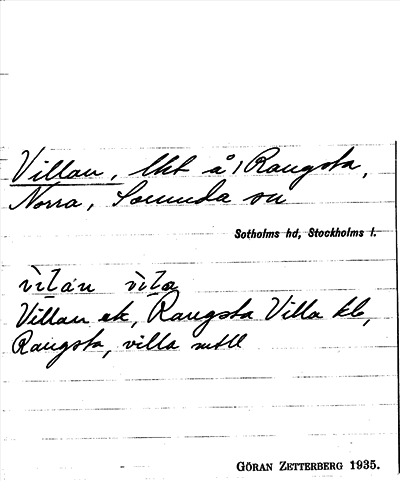 Villan, lht å 1 Rangsta,
Norra, Sorunda sn
Sotholms hd, Stockholms l.
Villan ek, Rangsta Villa kb,
Rangsta, villa mtll
GÖRAN ZETTERBERG 1935.